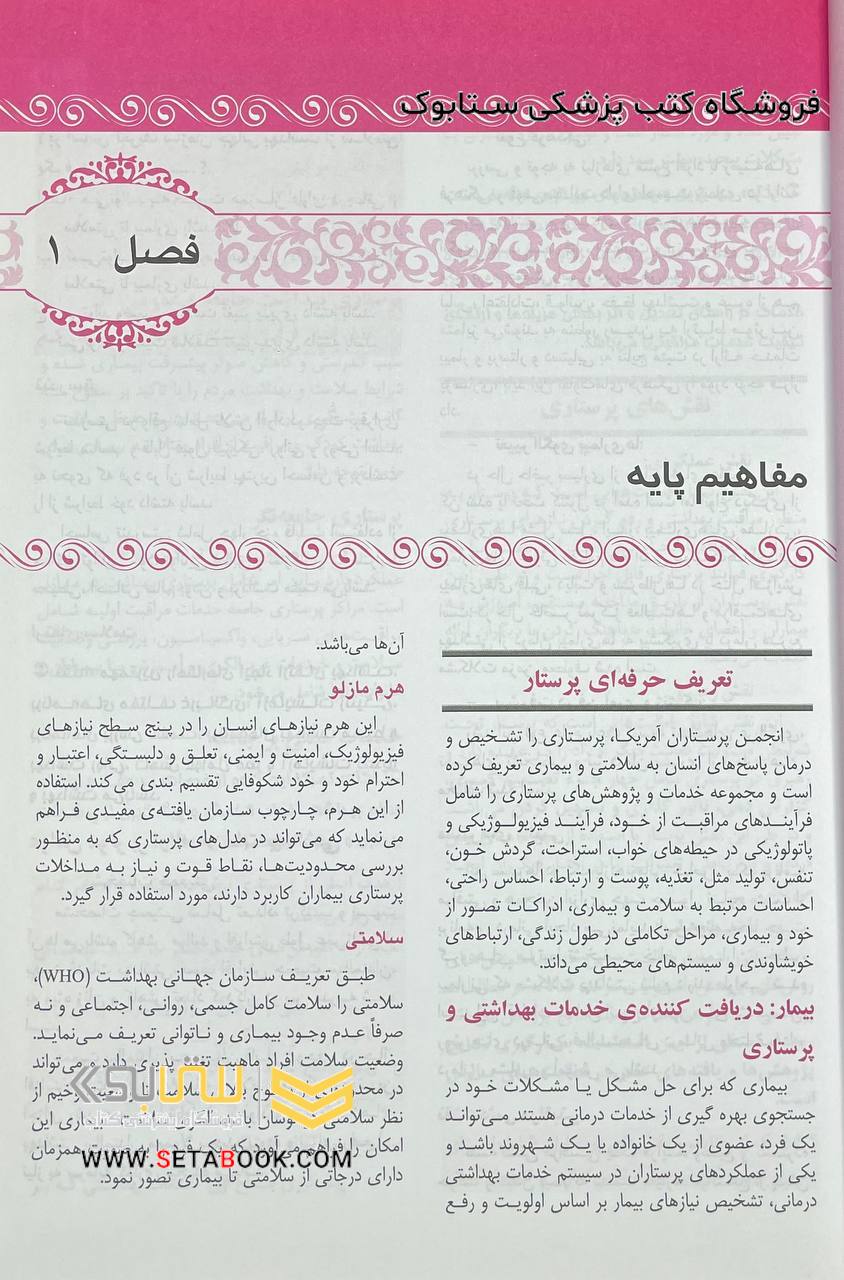 فروشگاه کتب پزشکی ستابوک
فصل ۱
مفاهیم پایه
تعریف حرفه‌ای پرستار
انجمن پرستاران آمریکا، پرستاری را تشخیص و
درمان پاسخ‌های انسان به سلامتی و بیماری تعریف کرده
است و مجموعه خدمات و پژوهش‌های پرستاری را شامل
فرآیندهای مراقبت از خود، فرآیند فیزیولوژیکی و
پاتولوژیکی در حیطه‌های خواب، استراحت، گردش خون،
تنفس، تولید مثل، تغذیه، پوست و ارتباط، احساس راحتی،
احساسات مرتبط به سلامت و بیماری، ادراکات تصور از
خود و بیماری، مراحل تکاملی در طول زندگی، ارتباط‌های
خویشاوندی و سیستم‌های محیطی می‌داند.
بیمار: دریافت کننده‌ی خدمات بهداشتی و
پرستاری
بیماری که برای حل مشکل یا مشکلات خود در
جستجوی بهره گیری از خدمات درمانی هستند می‌تواند
یک فرد، عضوی از یک خانواده یا یک شهروند باشد و
یکی از عملکردهای پرستاران در سیستم خدمات بهداشتی
درمانی، تشخیص نیازهای بیمار بر اساس اولویت و رفع
آن‌ها می‌باشد.
هرم مازلو
این هرم نیازهای انسان را در پنج سطح نیازهای
فیزیولوژیک، امنیت و ایمنی، تعلق و دلبستگی، اعتبار و
احترام خود و خود شکوفایی تقسیم بندی می‌کند. استفاده
از این هرم، چارچوب سازمان یافته‌ی مفیدی فراهم
می‌نماید که می‌تواند در مدل‌های پرستاری که به منظور
بررسی محدودیت‌ها، نقاط قوت و نیاز به مداخلات
پرستاری بیماران کاربرد دارند، مورد استفاده قرار گیرد.
سلامتی
طبق تعریف سازمان جهانی بهداشت (WHO)،
سلامتی را سلامت کامل جسمی، روانی، اجتماعی و نه
صرفاً عدم وجود بیماری و ناتوانی تعریف می‌نماید.
وضعیت سلامت افراد ماهیت تغییر پذیری دارد و می‌تواند
در سلامت تا وخیم از
نظر سلامتی بیماری این
امکان را فراهم می‌آورد که یک فرد را به صورت همزمان
دارای درجاتی از سلامتی تا بیماری تصور نمود.
ستابوک
WWW.SETABOOK.COM